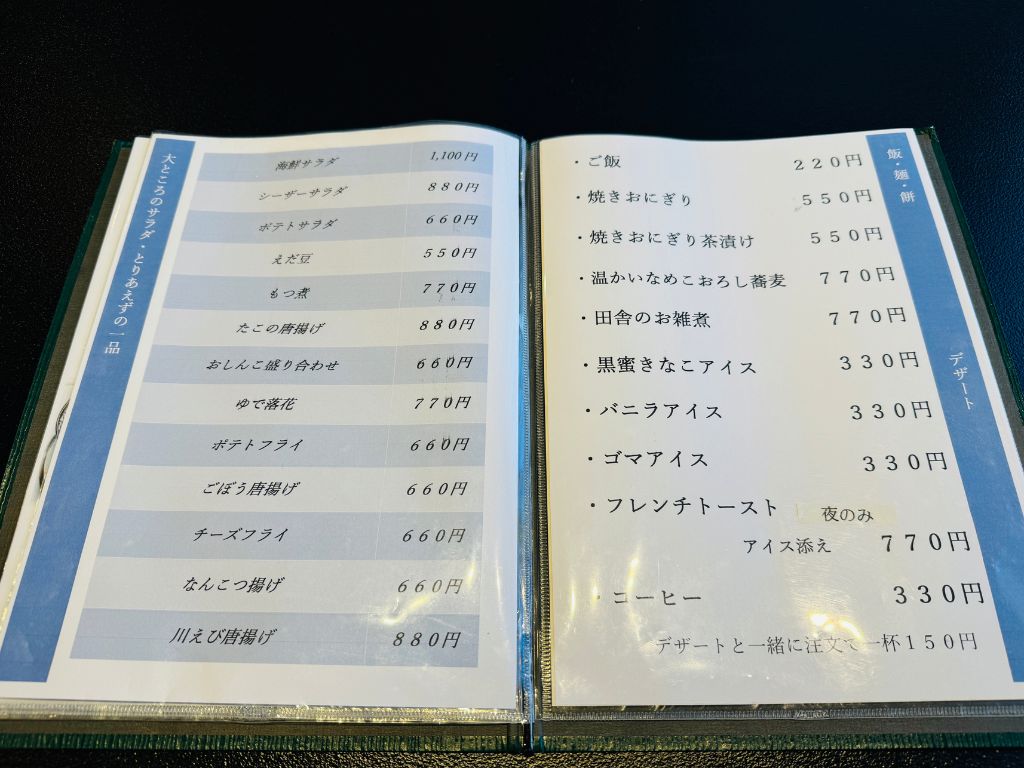 大ところのサラダ・とりあえずの一品
海鮮サラダ 1,100円
シーザーサラダ 880円
ポテトサラダ 660円
えだ豆 550円
もつ煮 770円
たこの唐揚げ 880円
おしんこ盛り合わせ 660円
ゆで落花 770円
ポテトフライ 660円
ごぼう唐揚げ 660円
チーズフライ 660円
なんこつ揚げ 660円
川えび唐揚げ 880円
飯・麺・餅
・ご飯 220円
・焼きおにぎり 550円
・焼きおにぎり茶漬け 550円
・温かいなめこおろし蕎麦 770円
・田舎のお雑煮 770円
デザート
・黒蜜きなこアイス 330円
・バニラアイス 330円
・ゴマアイス 330円
・フレンチトースト 夜のみ
アイス添え 770円
・コーヒー 330円
デザートと一緒に注文で一杯150円